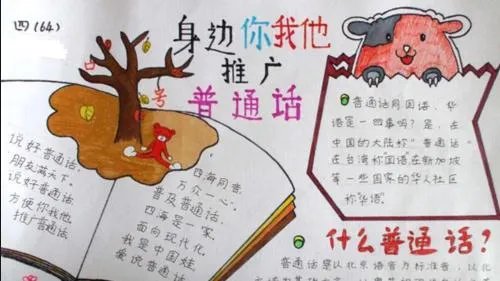 四(64)
身边你我他
推广
普通话
号
说好普通话,
朋友满天下.
说好普通话,
方便你我他,
推广普通话
四海同音,
万众一心,
普及普通话,
四海是一家,
面向现代化,
我是中国娃,
爱说普通话
普通话同国语、华
语是一回事吗?是,在
中国的大陆称"普通话"
在台湾称国语,在新加坡
等一些国家的华人社区
称"华语".
什么普通话?
普通话是以北京语音为标准音,以北